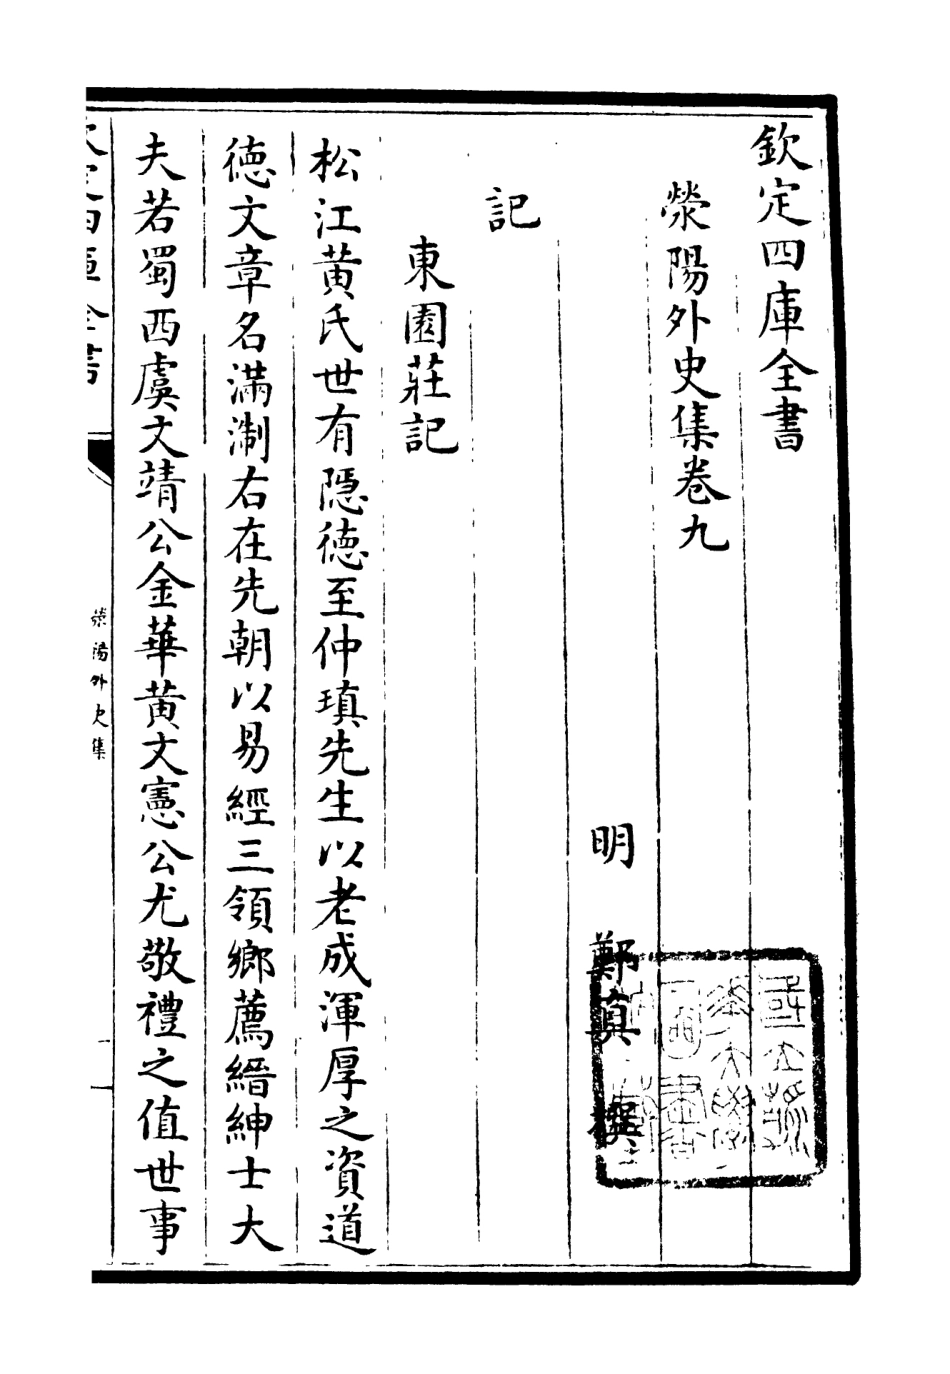 欽定四庫全書
滎陽外史集卷九
明 鄭真 撰
記
東園莊記
松江黄氏世有隠徳至仲瑱先生以老成渾厚之資道
徳文章名滿淛右在先朝以易經三領鄉薦縉紳士大
夫若蜀西虞文靖公金華黄文憲公尤敬禮之值世事
欽定四庫全書
滎陽外史集